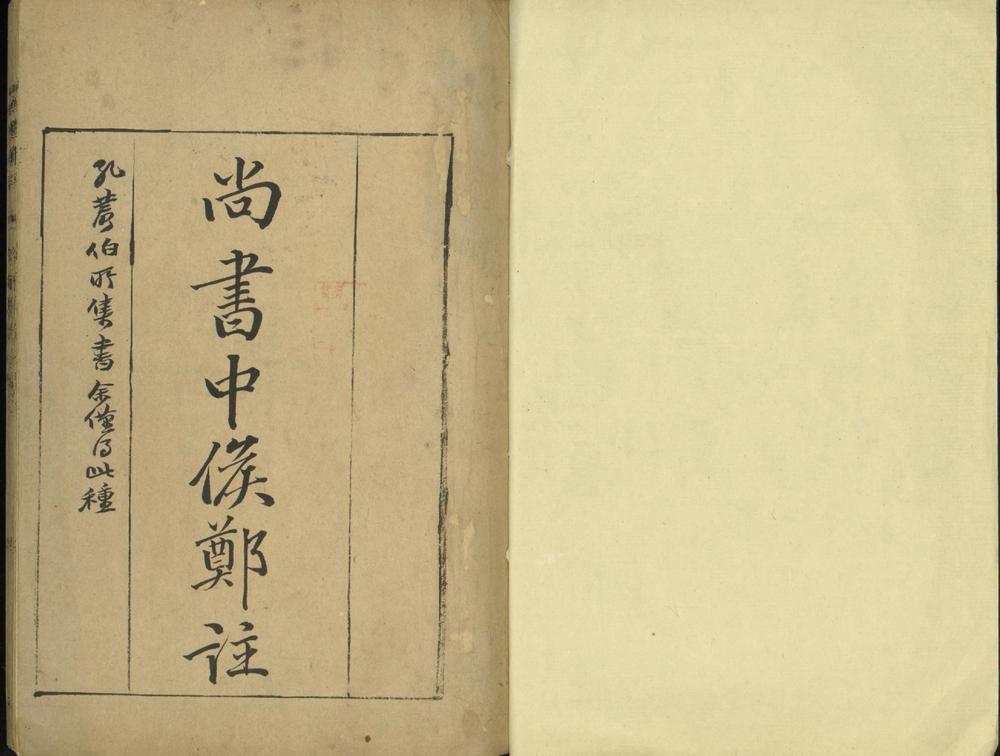 尚書中候鄭註
孔叢伯所集書余僅得此種